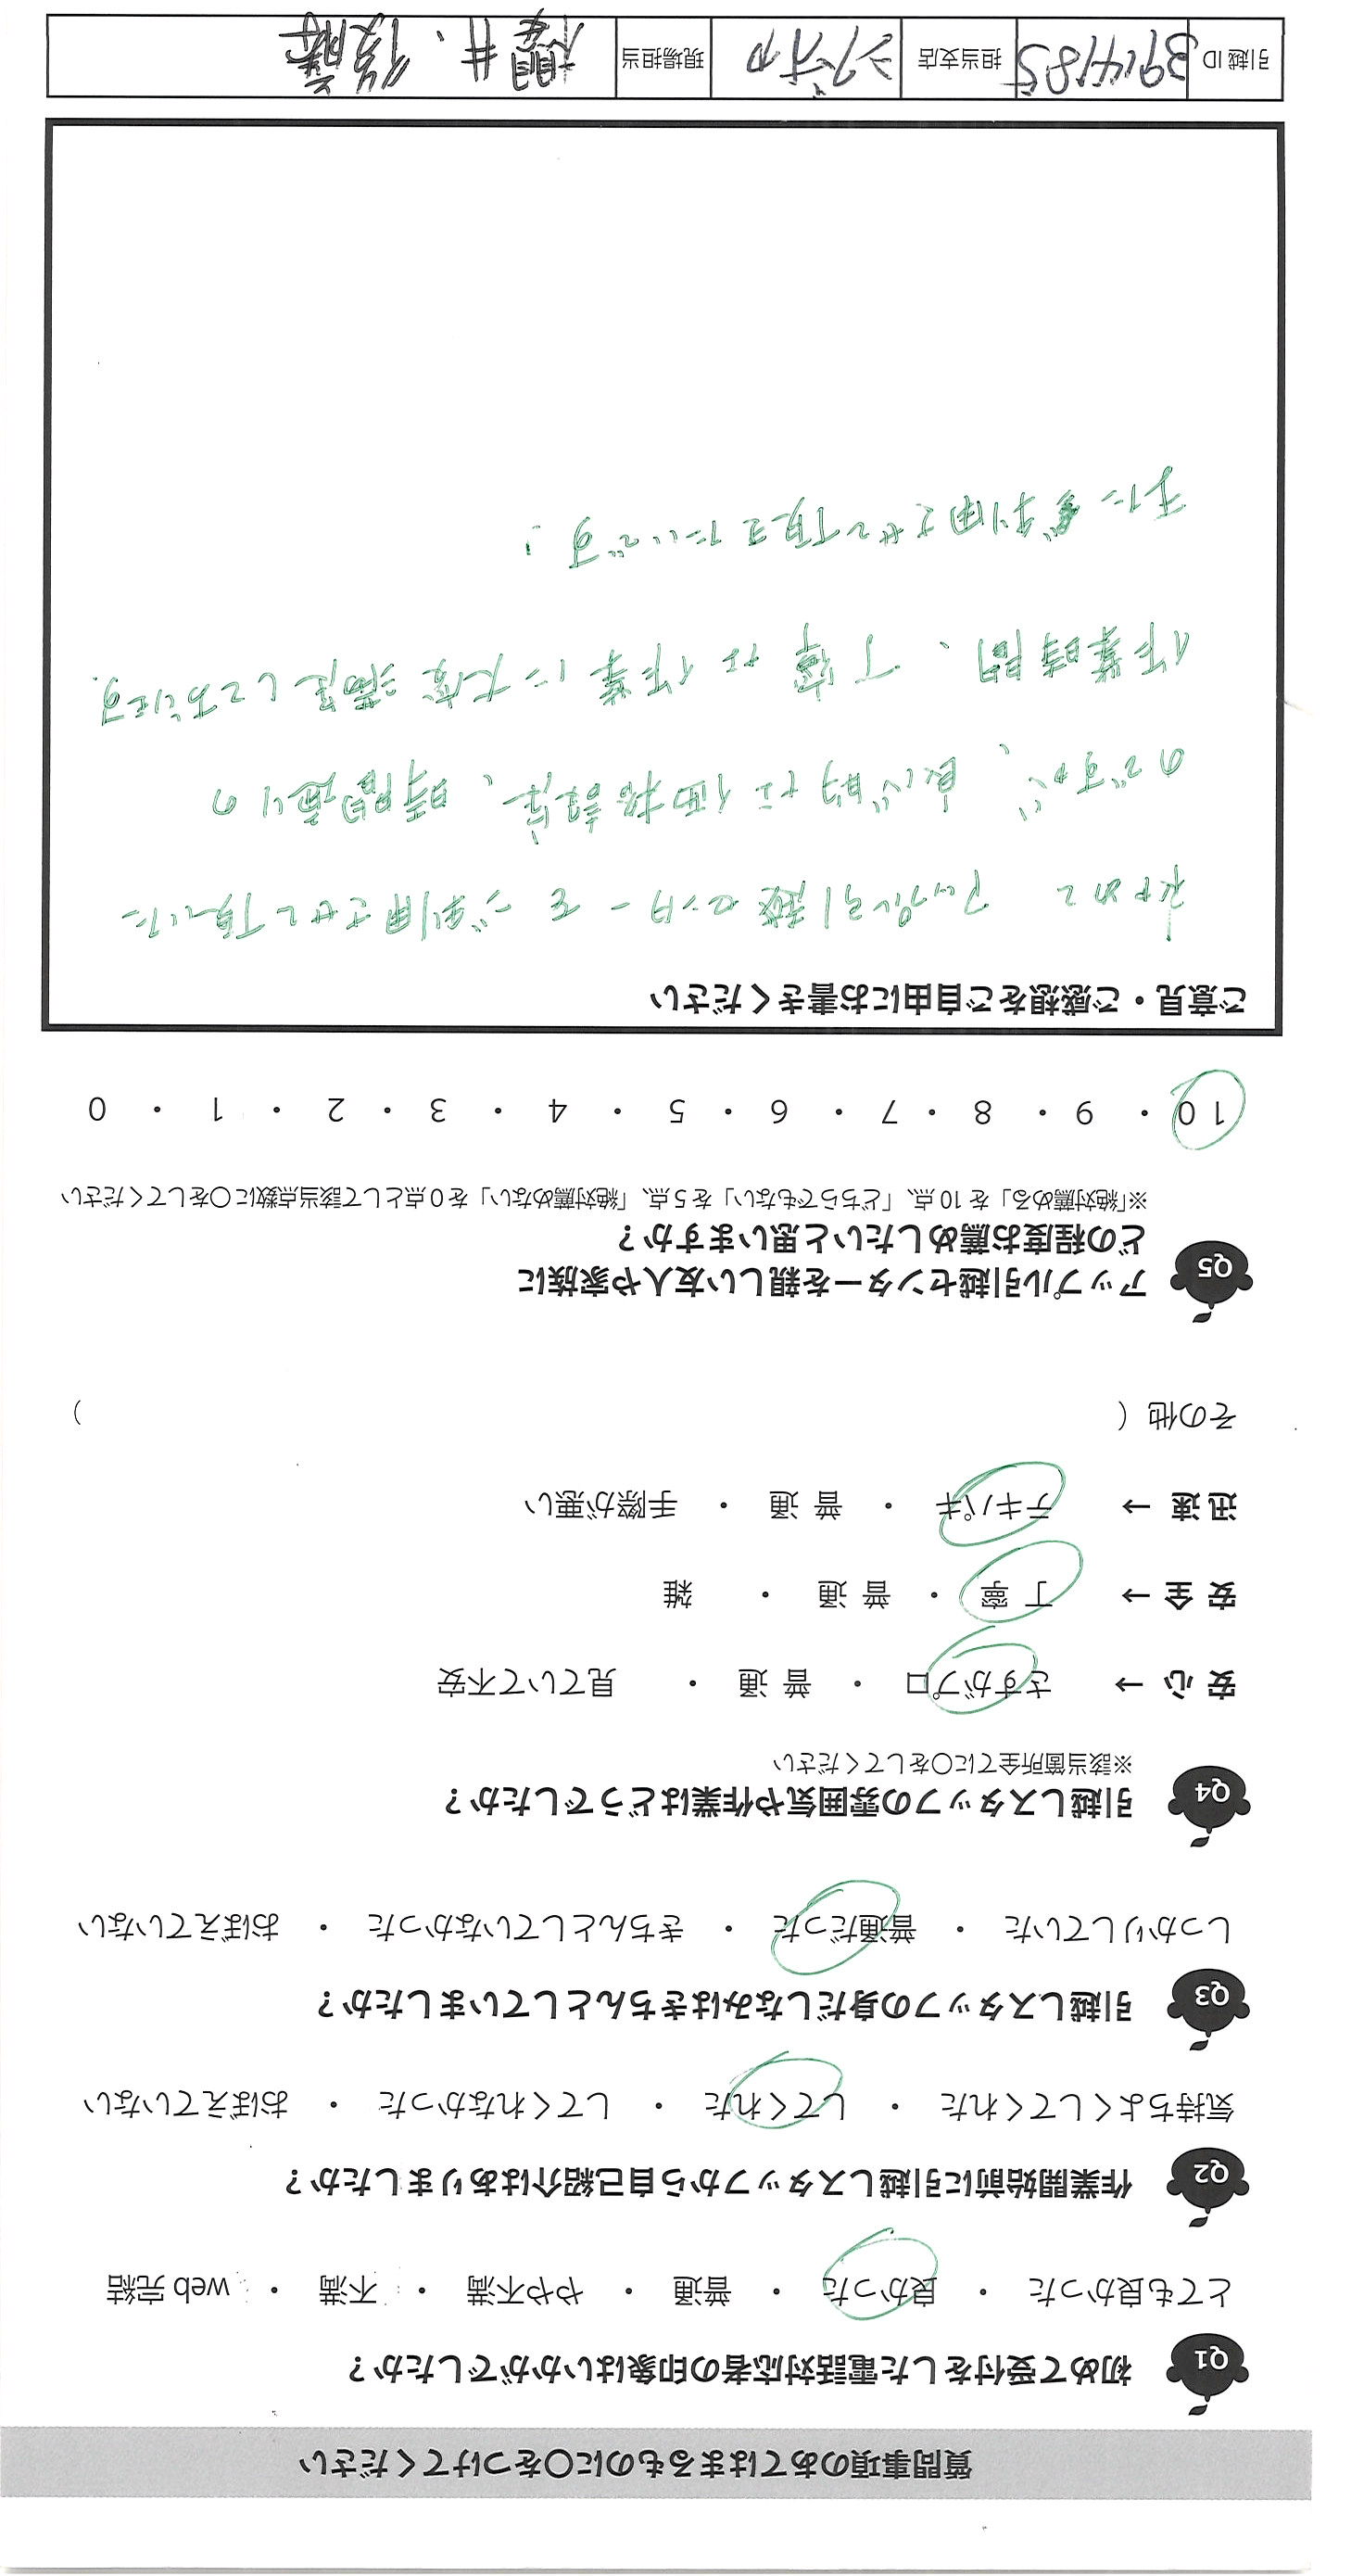 質問事項のあてはまるものに○をつけてください
Q1 初めて受付をした電話対応者の印象はいかがでしたか？
とても良かった ・ 良かった ・ 普通 ・ やや不満 ・ 不満 ・ web 完結
Q2 作業開始前に引越しスタッフから自己紹介はありましたか？
気持ちよくしてくれた ・ してくれた ・ してくれなかった ・ おぼえていない
Q3 引越しスタッフの身だしなみはきちんとしていましたか？
しっかりしていた ・ 普通だった ・ きちんとしていなかった ・ おぼえていない
Q4 引越しスタッフの雰囲気や作業はどうでしたか？
※該当箇所全てに○をしてください
安 心 → さすがプロ ・ 普 通 ・ 見ていて不安
安 全 → 丁 寧 ・ 普 通 ・ 雑
迅 速 → テキパキ ・ 普 通 ・ 手際が悪い
その他（ ）
Q5 アップル引越センターを親しい友人や家族に
どの程度お薦めしたいと思いますか？
※「絶対薦める」を 10 点、「どちらでもない」を 5 点、「絶対薦めない」を 0 点として該当点数に○をしてください
10 ・ 9 ・ 8 ・ 7 ・ 6 ・ 5 ・ 4 ・ 3 ・ 2 ・ 1 ・ 0
ご意見・ご感想をご自由にお書きください
アップル引越センターをご利用させて頂いた
のですが、良心的な価格設定、時間通りの
作業時間、丁寧な作業に大変満足しております。
またご利用させて頂きたいです！
引越 ID 3914185 担当支店 現場担当 櫻井、後藤